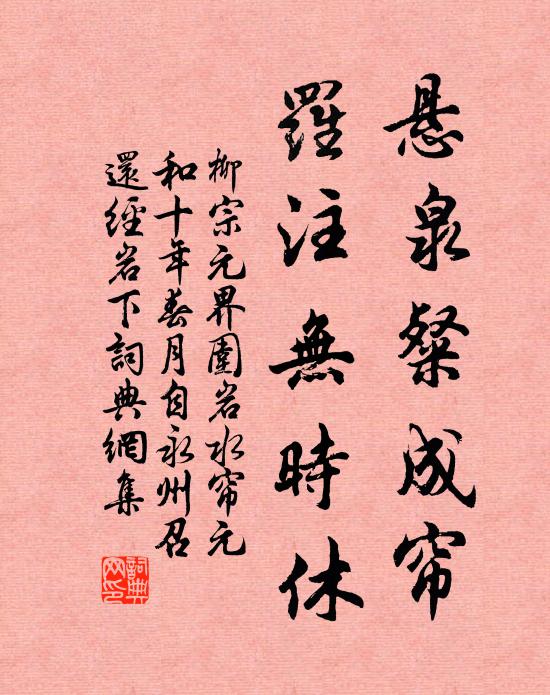 悬泉粲成帘
羅注無時休
柳宗元界圍岩水帘元
和十年春月自永州召
還經岩下詞典網集
詞典
网印